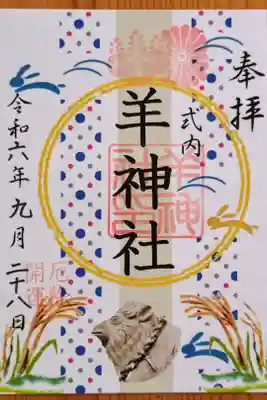 奉拝
式内
羊神社
令和六年九月二十八日
開運